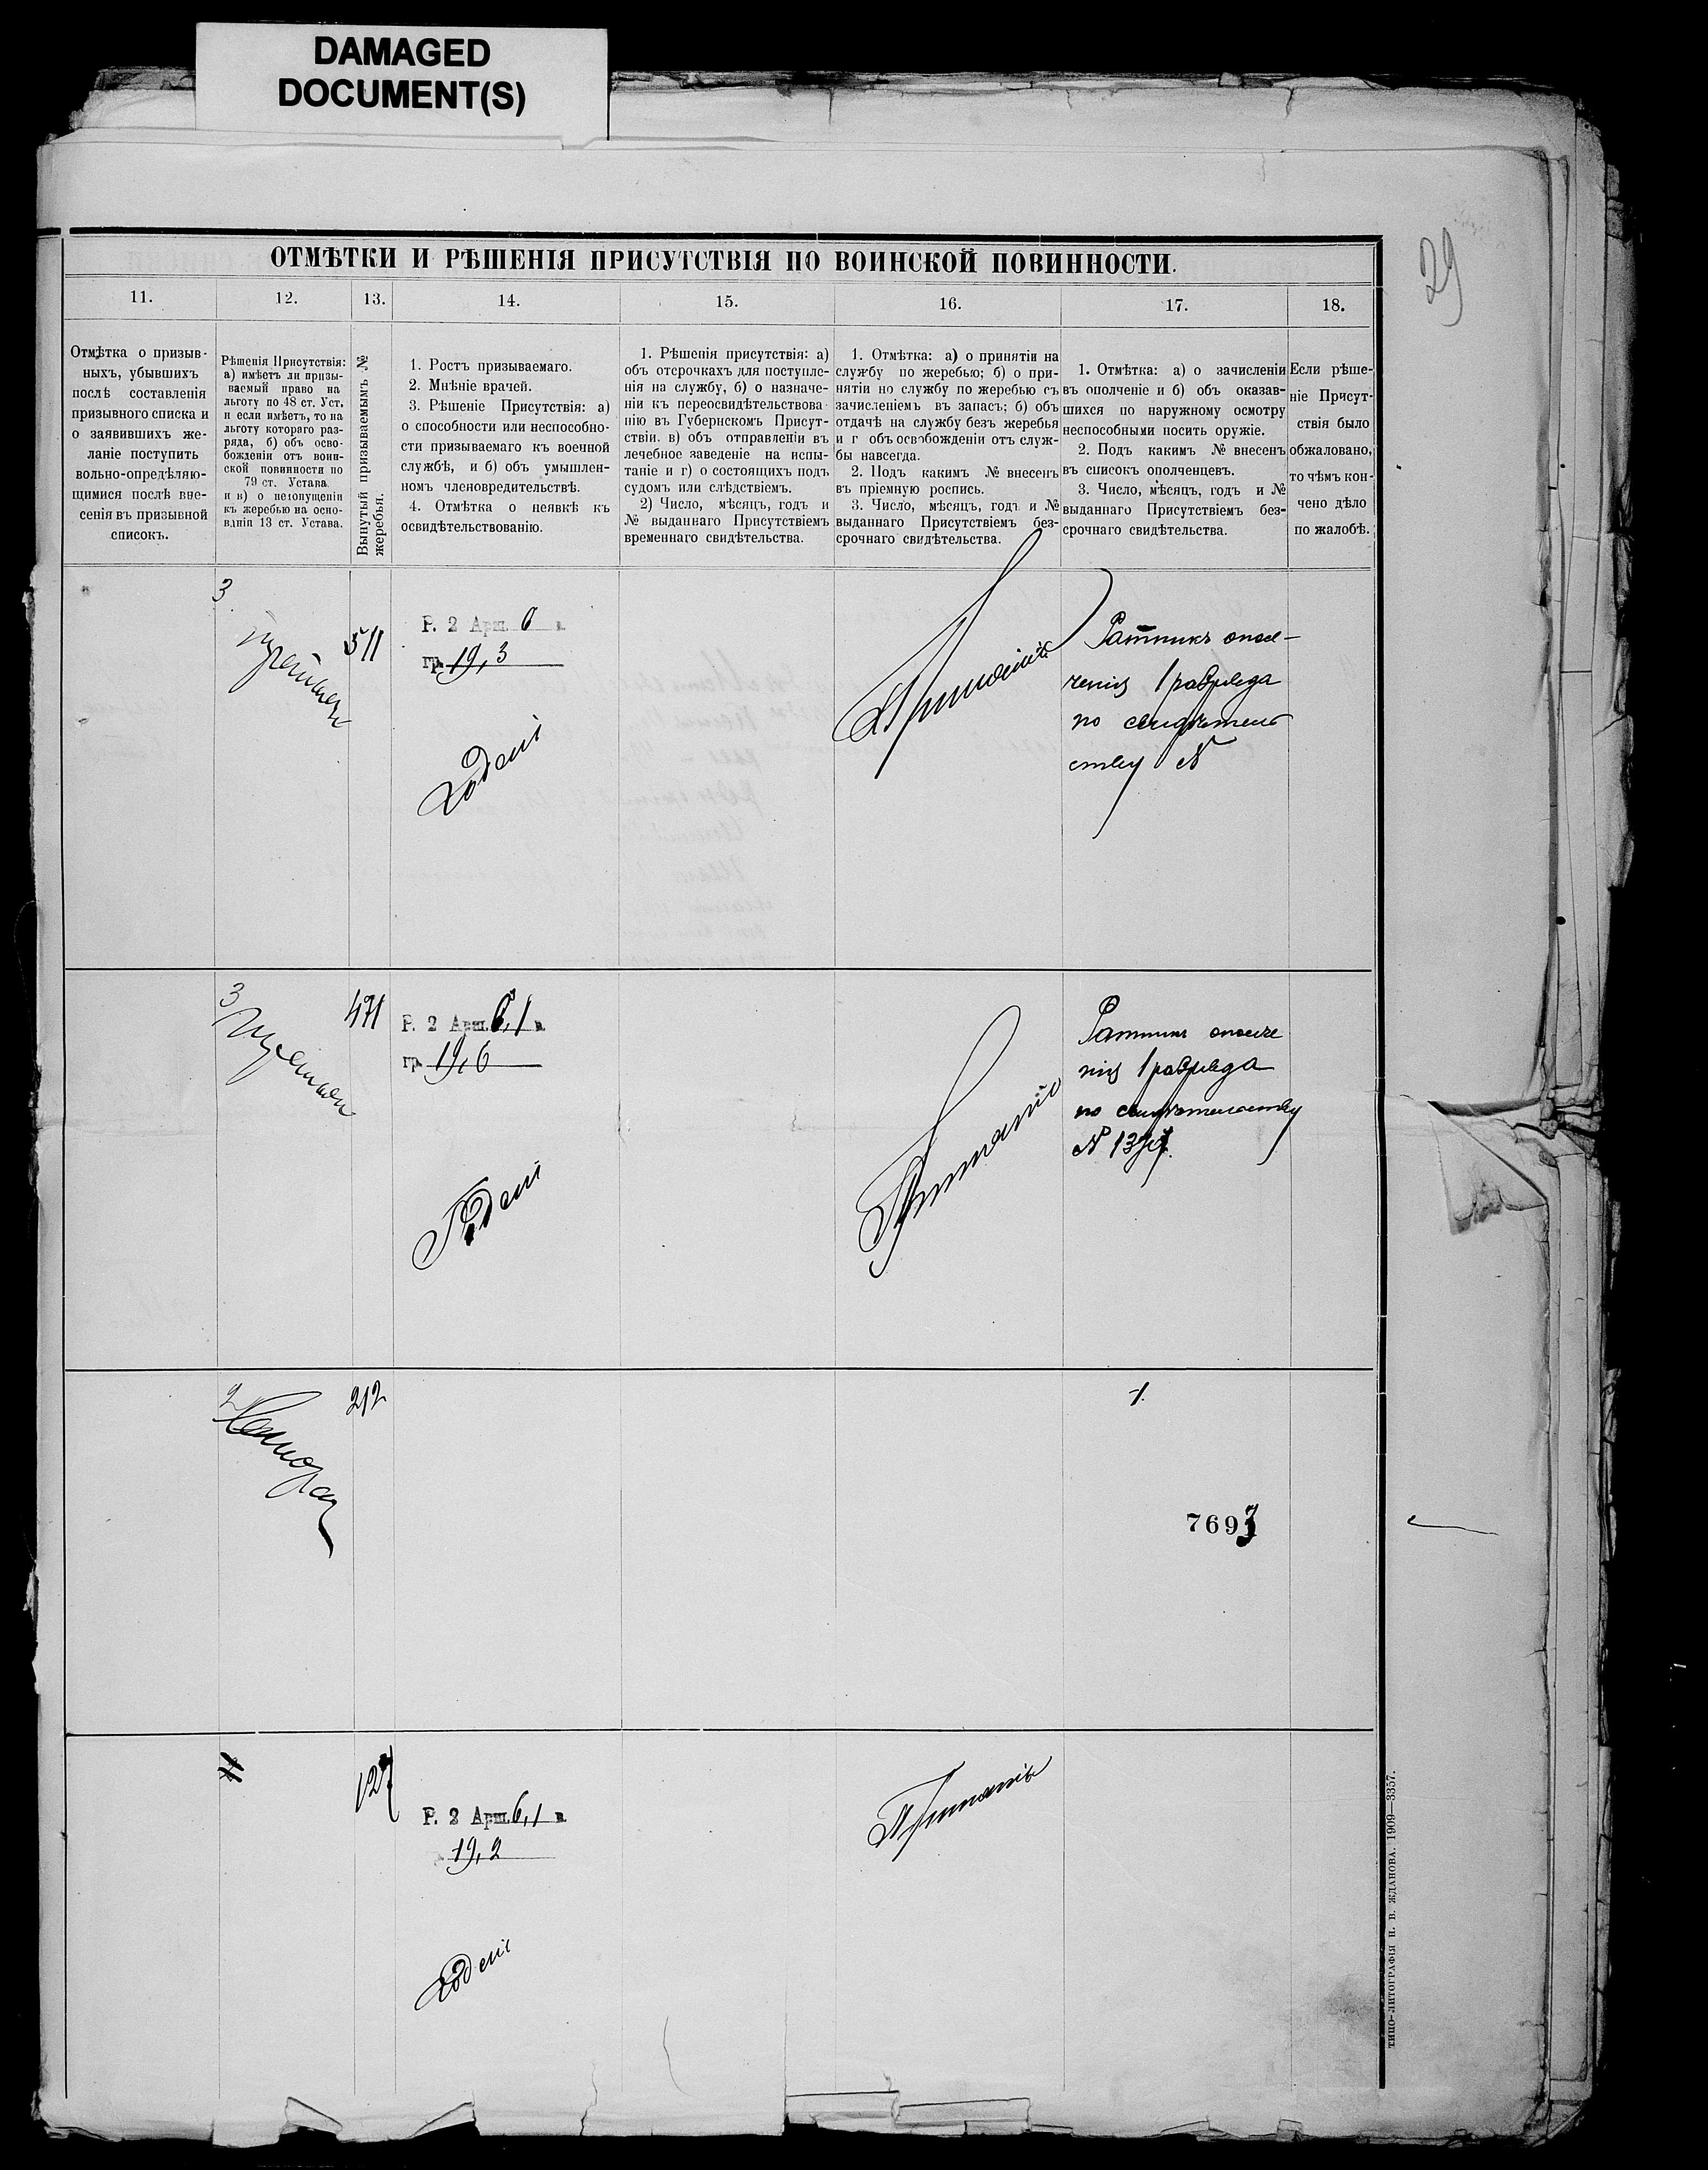 DAMAGED
DOCUMENT(S)
29
ОТМѢТКИ И РѢШЕНІЯ ПРИСУТСТВІЯ ПО ВОИНСКОЙ ПОВИННОСТИ.
11.
12.
13.
14.
15.
16.
17.
18.
Отмѣтка о призыв-
ныхъ, убывшихъ
послѣ составленія
призывного списка и
о заявившихъ же-
ланіе поступить
вольно-опредѣляю-
щимися послѣ вне-
сенія въ призывной
списокъ.
Рѣшенія Присутствія:
а) имѣетъ ли призы-
ваемый право на
льготу по 48 ст. Уст.
и если имѣетъ, то на
льготу котораго раз-
ряда, б) объ осво-
божденіи отъ воин-
ской повинности по
79 ст. Устава
и в) о недопущеніи
къ жеребью на осно-
ваніи 13 ст. Устава.
Вынутый призываемымъ №
жеребья.
1. Ростъ призываемаго.
2. Мнѣніе врачей.
3. Рѣшеніе Присутствія: а)
о способности или неспособно-
сти призываемаго къ военной
службѣ, и б) объ умышлен-
номъ членовредительствѣ.
4. Отмѣтка о неявкѣ къ
освидѣтельствованію.
1. Рѣшенія присутствія: а)
объ отсрочкахъ для поступле-
нія на службу, б) о назначе-
ніи къ переосвидѣтельствова-
нію въ Губернскомъ Присут-
ствіи. в) объ отправленіи въ
лечебное заведеніе на испы-
таніе и г) о состоящихъ подъ
судомъ или слѣдствіемъ.
2) Число, мѣсяцъ, годъ и
№ выданнаго Присутствіемъ
временнаго свидѣтельства.
1. Отмѣтка: а) о принятіи на
службу по жеребью; б) о при-
нятіи но службу по жеребью съ
зачисленіемъ въ запасъ; б) объ
отдачѣ на службу безъ жеребья
и г объ освобожденіи отъ служ-
бы навсегда.
2. Подъ какимъ № внесенъ
въ пріемную роспись.
3. Число, мѣсяцъ, годъ и №
выданнаго Присутствіемъ без-
срочнаго свидѣтельства.
1. Отмѣтка: а) о зачисленіи
въ ополченіе и б) объ оказав-
шихся по наружному осмотру
неспособными носить оружіе.
2. Подъ какимъ № внесенъ
въ списокъ ополченцевъ.
3. Число, мѣсяцъ, годъ и №
выданнаго Присутствіемъ без-
срочнаго свидѣтельства.
Если рѣше-
ніе Присут-
ствія было
обжаловано,
то чѣмъ кон-
чено дѣло
по жалобѣ.
3
третьяго
511
Р. 2 Арш. 6 в.
гр. 19,3
Годенъ
Принятъ
Ратникъ опол-
ченія 1 разряда
по свидѣтель
ству №
3
471
Р. 2 Арш. 6,1 в.
гр. 19,6
Годенъ
Ратникъ ополче
нія 1 разряда
по свидѣтельству
№
2
212
1.
7693
127
Р. 2 Арш. 6,1 в.
19,2
Годенъ
Принятъ
ТИПО-ЛИТОГРАФІЯ Н. В. ЖДАНОВА. 1909—3357.